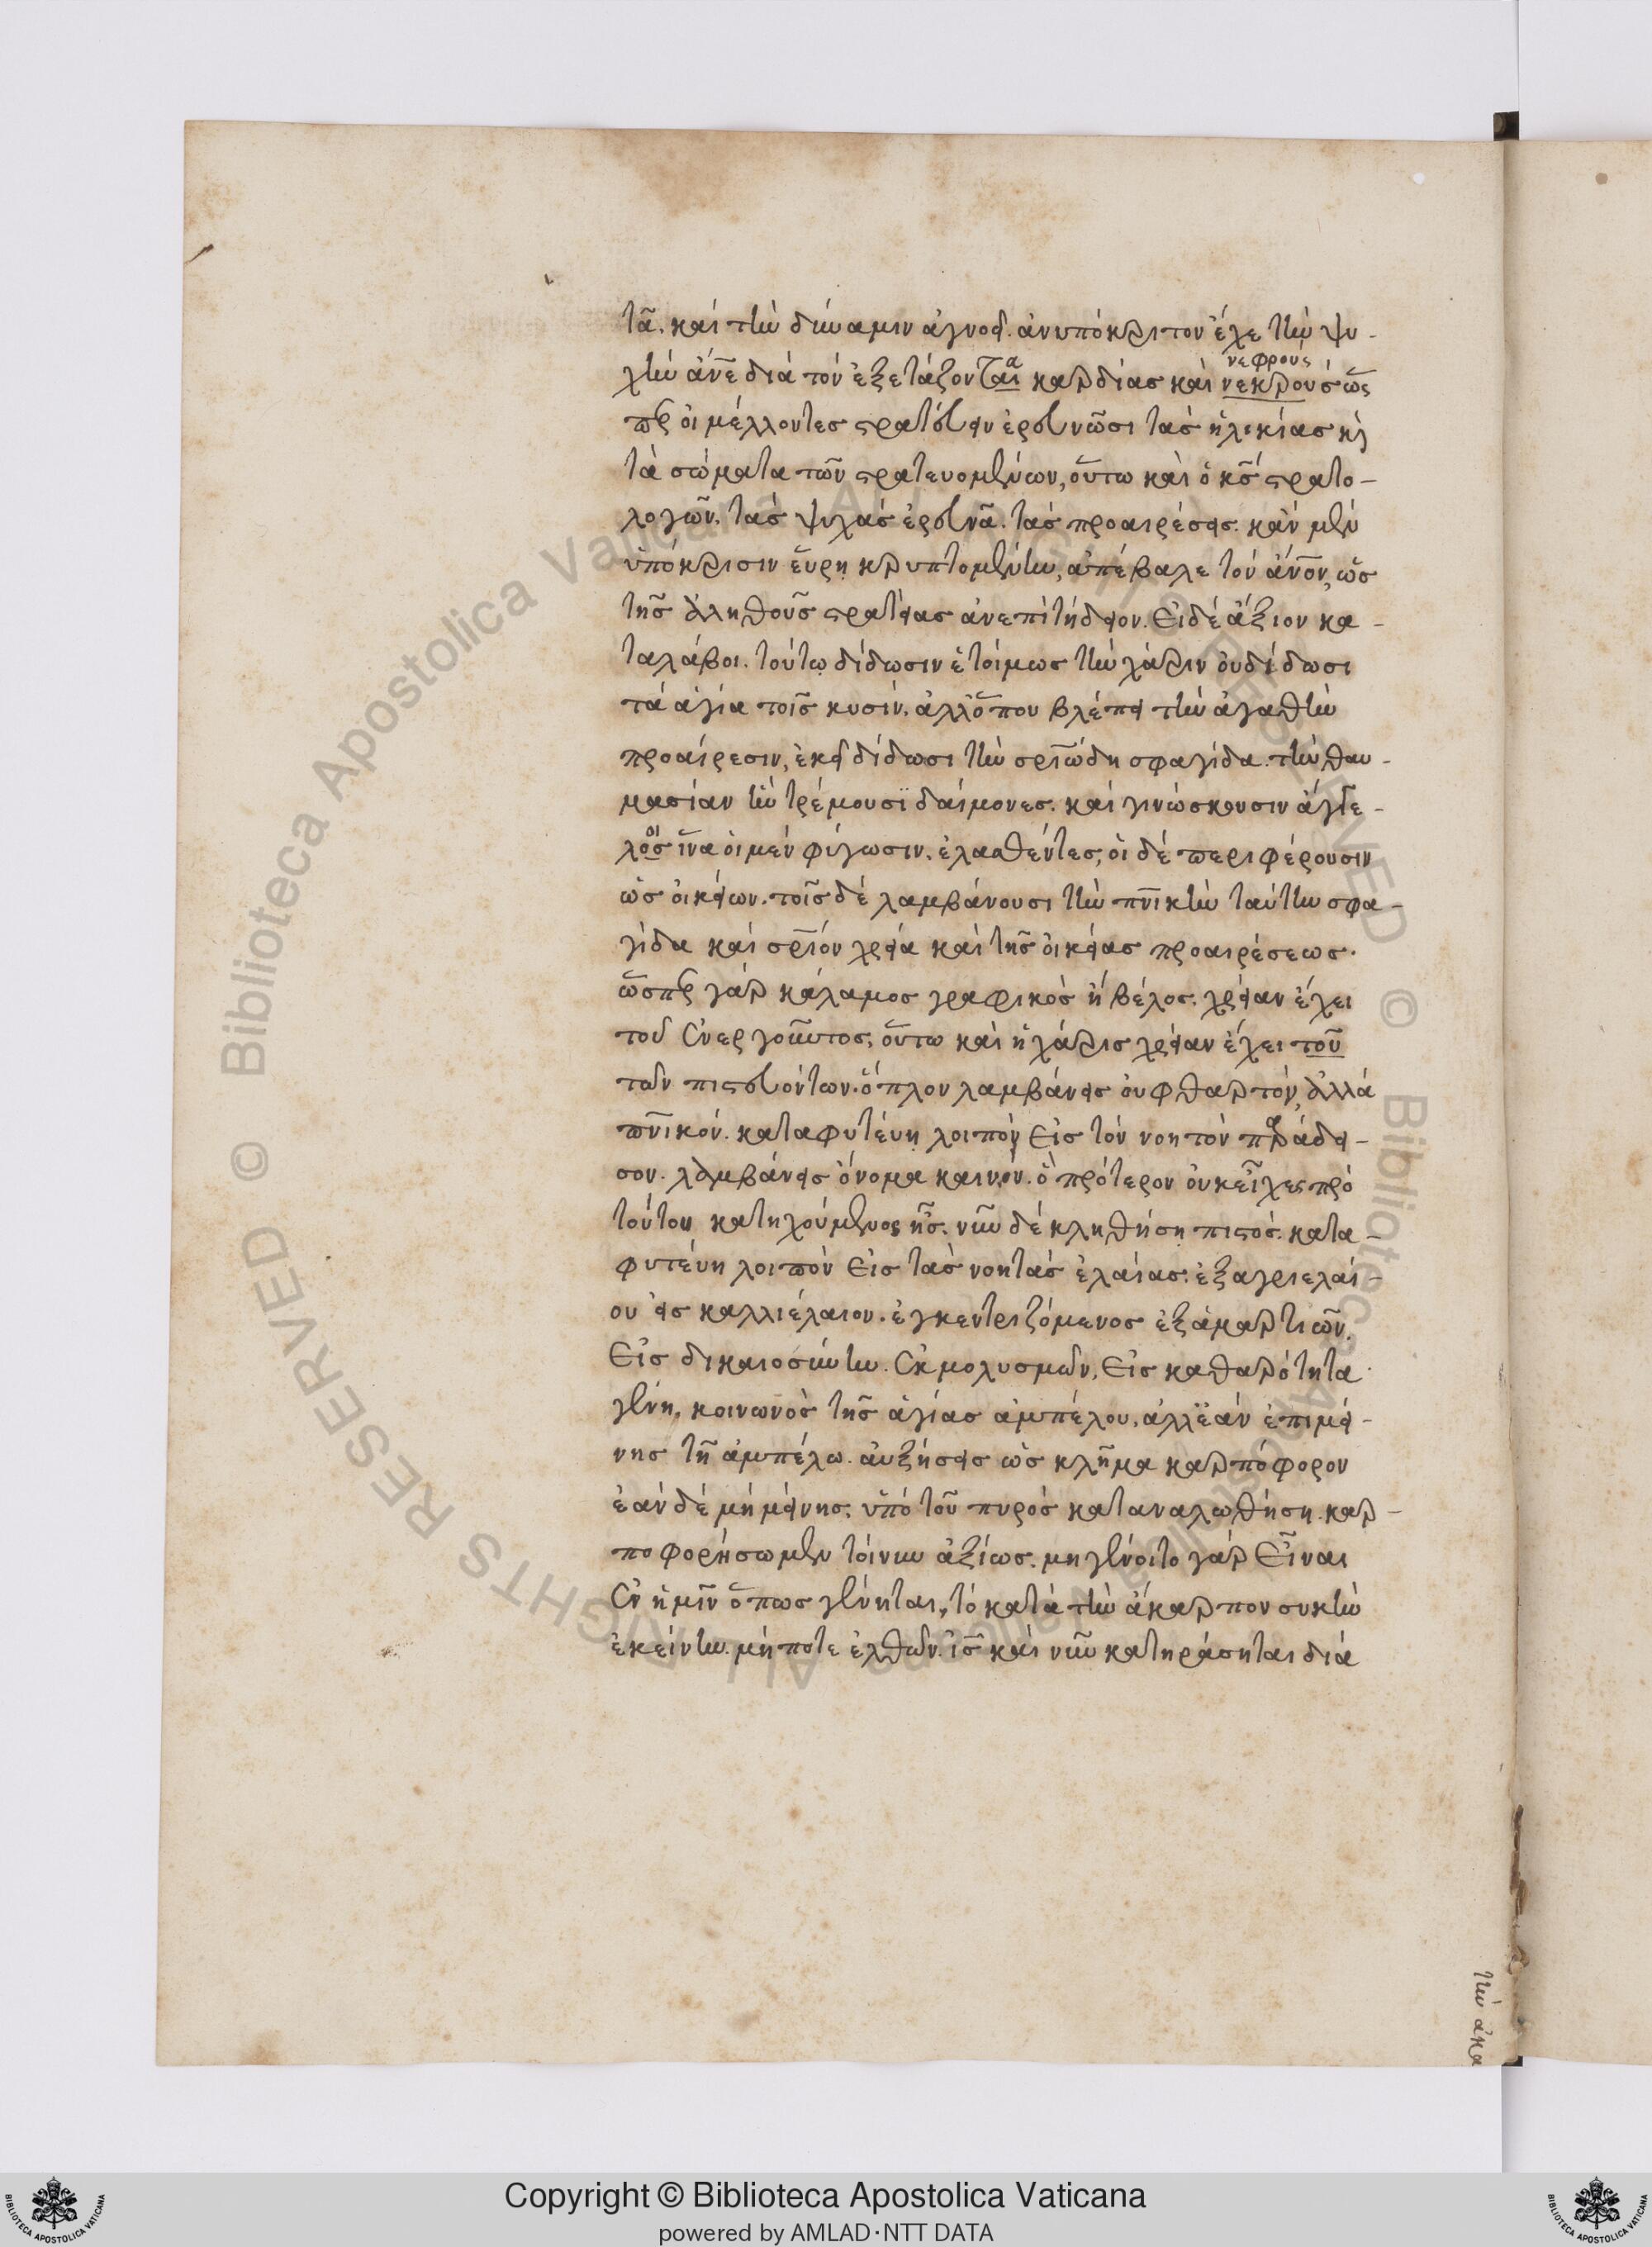 τᾶ. καί τὴν δύναμιν ἀγνοεῖ. ἀνυπόκριτον ἔχε τὴν ψυ-
χὴν ἄν̅ε διά τόν ἐξετάζοντ̣αι καρδίας καὶ νεκρούς ὥς
α
νεφρούς
περ οἱ μέλλοντες στρατεύειν ἐρευνῶσι τάς ἡλικίας κ̀
τὰ σώματα τῶν στρατευομένων, οὕτω καὶ ὁ κ̅ς στρατο-
λογῶν. τάς ψυχάς ἐρευνᾶ. τάς προαιρέσεις. κἄν μέν
ὑπόκρισιν εὕρῃ κρυπτομένην, ἀπέβαλε τόν ἄν̅ον, ὡς
τῆς ἀληθοῦς στρατείας ἀνεπιτήδειον. Εἰ δέ ἄξιον κα-
ταλάβοι. τούτῳ δίδωσιν ἑτοίμως τὴν χάριν οὐ δίδωσι
τά ἁγία τοῖς κυσίν. ἀλλ' ὅπου βλέπει τὴν ἀγαθὴν
προαίρεσιν, ἐκεῖ δίδωσι τὴν σρ̅ιώδη σφαγίδα. τὴν θαυ-
μασίαν ἣν τρέμουσϊ δαίμονες. καί γινώσκουσιν ἄγγε-
λοίς ἵνα οἱ μέν φύγωσιν. ἐλασθέντες, οἱ δέ περιφέρουσιν
ὡς οἰκείων. τοῖς δέ λαμβάνουσι τὴν πν̅ικὴν ταύτην σφα-
γίδα καί σρ̅ιόν χρεία καί τῆς οἰκείας προαιρέσεως.
ὥσπερ γάρ κάλαμος γραφικός ἤ βέλος. χρείαν ἔχει
τοῦ ἐνεργοῦντος, οὕτω καὶ ἡ χάρις χρείαν ἔχει τοῦ
τῶν πιστευόντων. ὅπλον λαμβάνεις οὐ φθαρτόν, ἀλλά
πν̅ικόν. καταφυτεύῃ λοιπόν Εἰς τόν νοητόν παράδει-
σον. λαμβάνεις ὄνομα καινόν. ὃ πρότερον οὐκ εἶχες πρό
τούτου κατηχούμενος ἦς. νῦν δέ κληθήσῃ πιστός. κατα-
φυτεύῃ λοιπόν Εἰς τάς νοητάς ἐλαίας. ἐξ ἀγριελαί-
ου εἰς καλλιέλαιον. ἐγκεντριζόμενος ἐξ ἁμαρτιῶν.
Εἰς δικαιοσύνην. Ἐκ μολυσμῶν, Εἰς καθαρότητα
γένῃ, κοινωνός τῆς ἁγίας ἀμπέλου, ἀλλ' ἐάν ἐπιμεί-
νῃς τῇ ἀμπέλω. αὐξήσεις ὡς κλῆμα καρπόφορον
ἐάν δέ μή μείνῃς. ὑπό τοῦ πυρός καταναλωθήσῃ. καρ-
ποφορήσωμεν τοίνυν ἀξίως. μη γένοιτο γάρ Εἶναι
Ἐν ἡμῖν ὅπως γένηται, τό κατά τὴν ἄκαρπον συκὴν
ἐκείνην. μήποτε ἐλθών. ἰ̅ς καί νῦν κατηράσηται διά
τὴν ἀκα